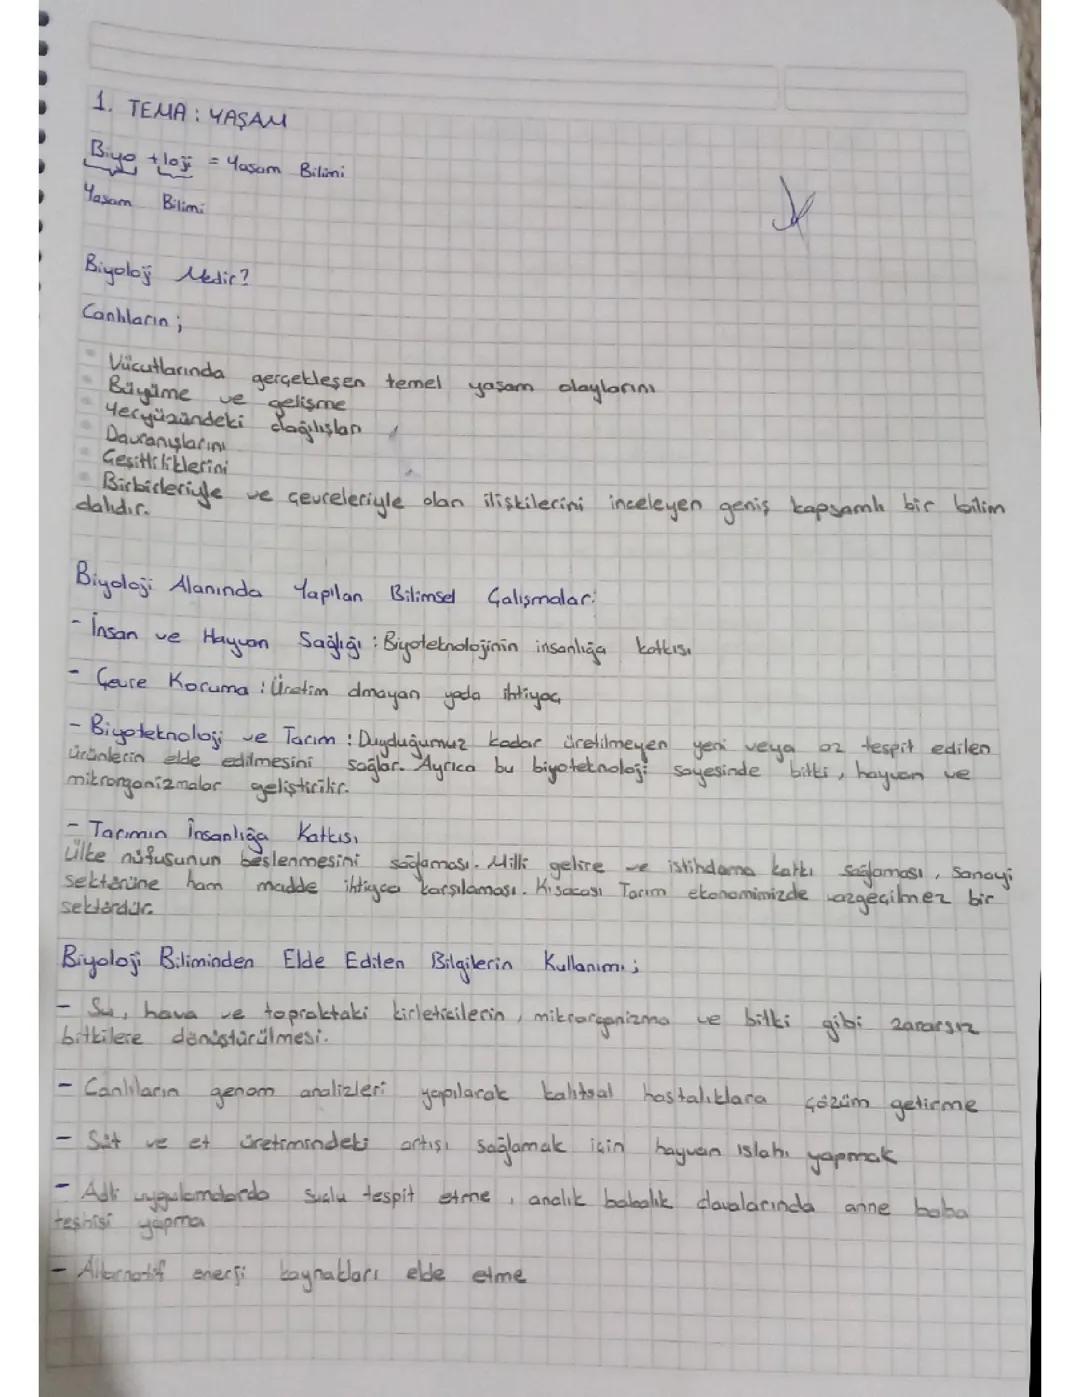 1. TEMA : YAŞAM
Biyo + loji = Yaşam Bilimi
Yaşam Bilimi
Biyoloji Nedir?
Canlıların ;
Vücutlarında gerçekleşen temel yaşam olaylarını
Büyüme ve gelişme
Yeryüzündeki dağılışları
Davranışlarını
Çeşitliliklerini
Birbirleriyle ve çevreleriyle olan ilişkilerini inceleyen geniş kapsamlı bir bilim
dalıdır.
Biyoloji Alanında Yapılan Bilimsel Çalışmalar:
- İnsan ve Hayvan Sağlığı : Biyoteknolojinin insanlığa katkısı
- Çevre Koruma : Üretim olmayan yada ihtiyaç
- Biyoteknoloji ve Tarım : Duyduğumuz kadar üretilmeyen yeni veya az tespit edilen
ürünlerin elde edilmesini sağlar. Ayrıca bu biyoteknoloji sayesinde bitki, hayvan ve
mikrorganizmalar geliştirilir.
- Tarımın İnsanlığa Katkısı
Ülke nüfusunun beslenmesini sağlaması. Milli gelire ve istihdama katkı sağlaması, Sanayi
sektörüne ham madde ihtiyacı karşılaması. Kısacası Tarım ekonomimizde vazgeçilmez bir
sektördür.
Biyoloji Biliminden Elde Edilen Bilgilerin Kullanımı ;
- Su, hava ve topraktaki kirleticilerin, mikrorganizma ve bitki gibi zararsız
bitkilere dönüştürülmesi.
- Canlıların genom analizleri yapılarak kalıtsal hastalıklara çözüm getirme
- Süt ve et üretimindeki artışı sağlamak için hayvan ıslahı yapmak
- Adli uygulamalarda suçlu tespit etme, analık babalık davalarında anne baba
teşhisi yapma
- Alternatif enerji kaynakları elde etme